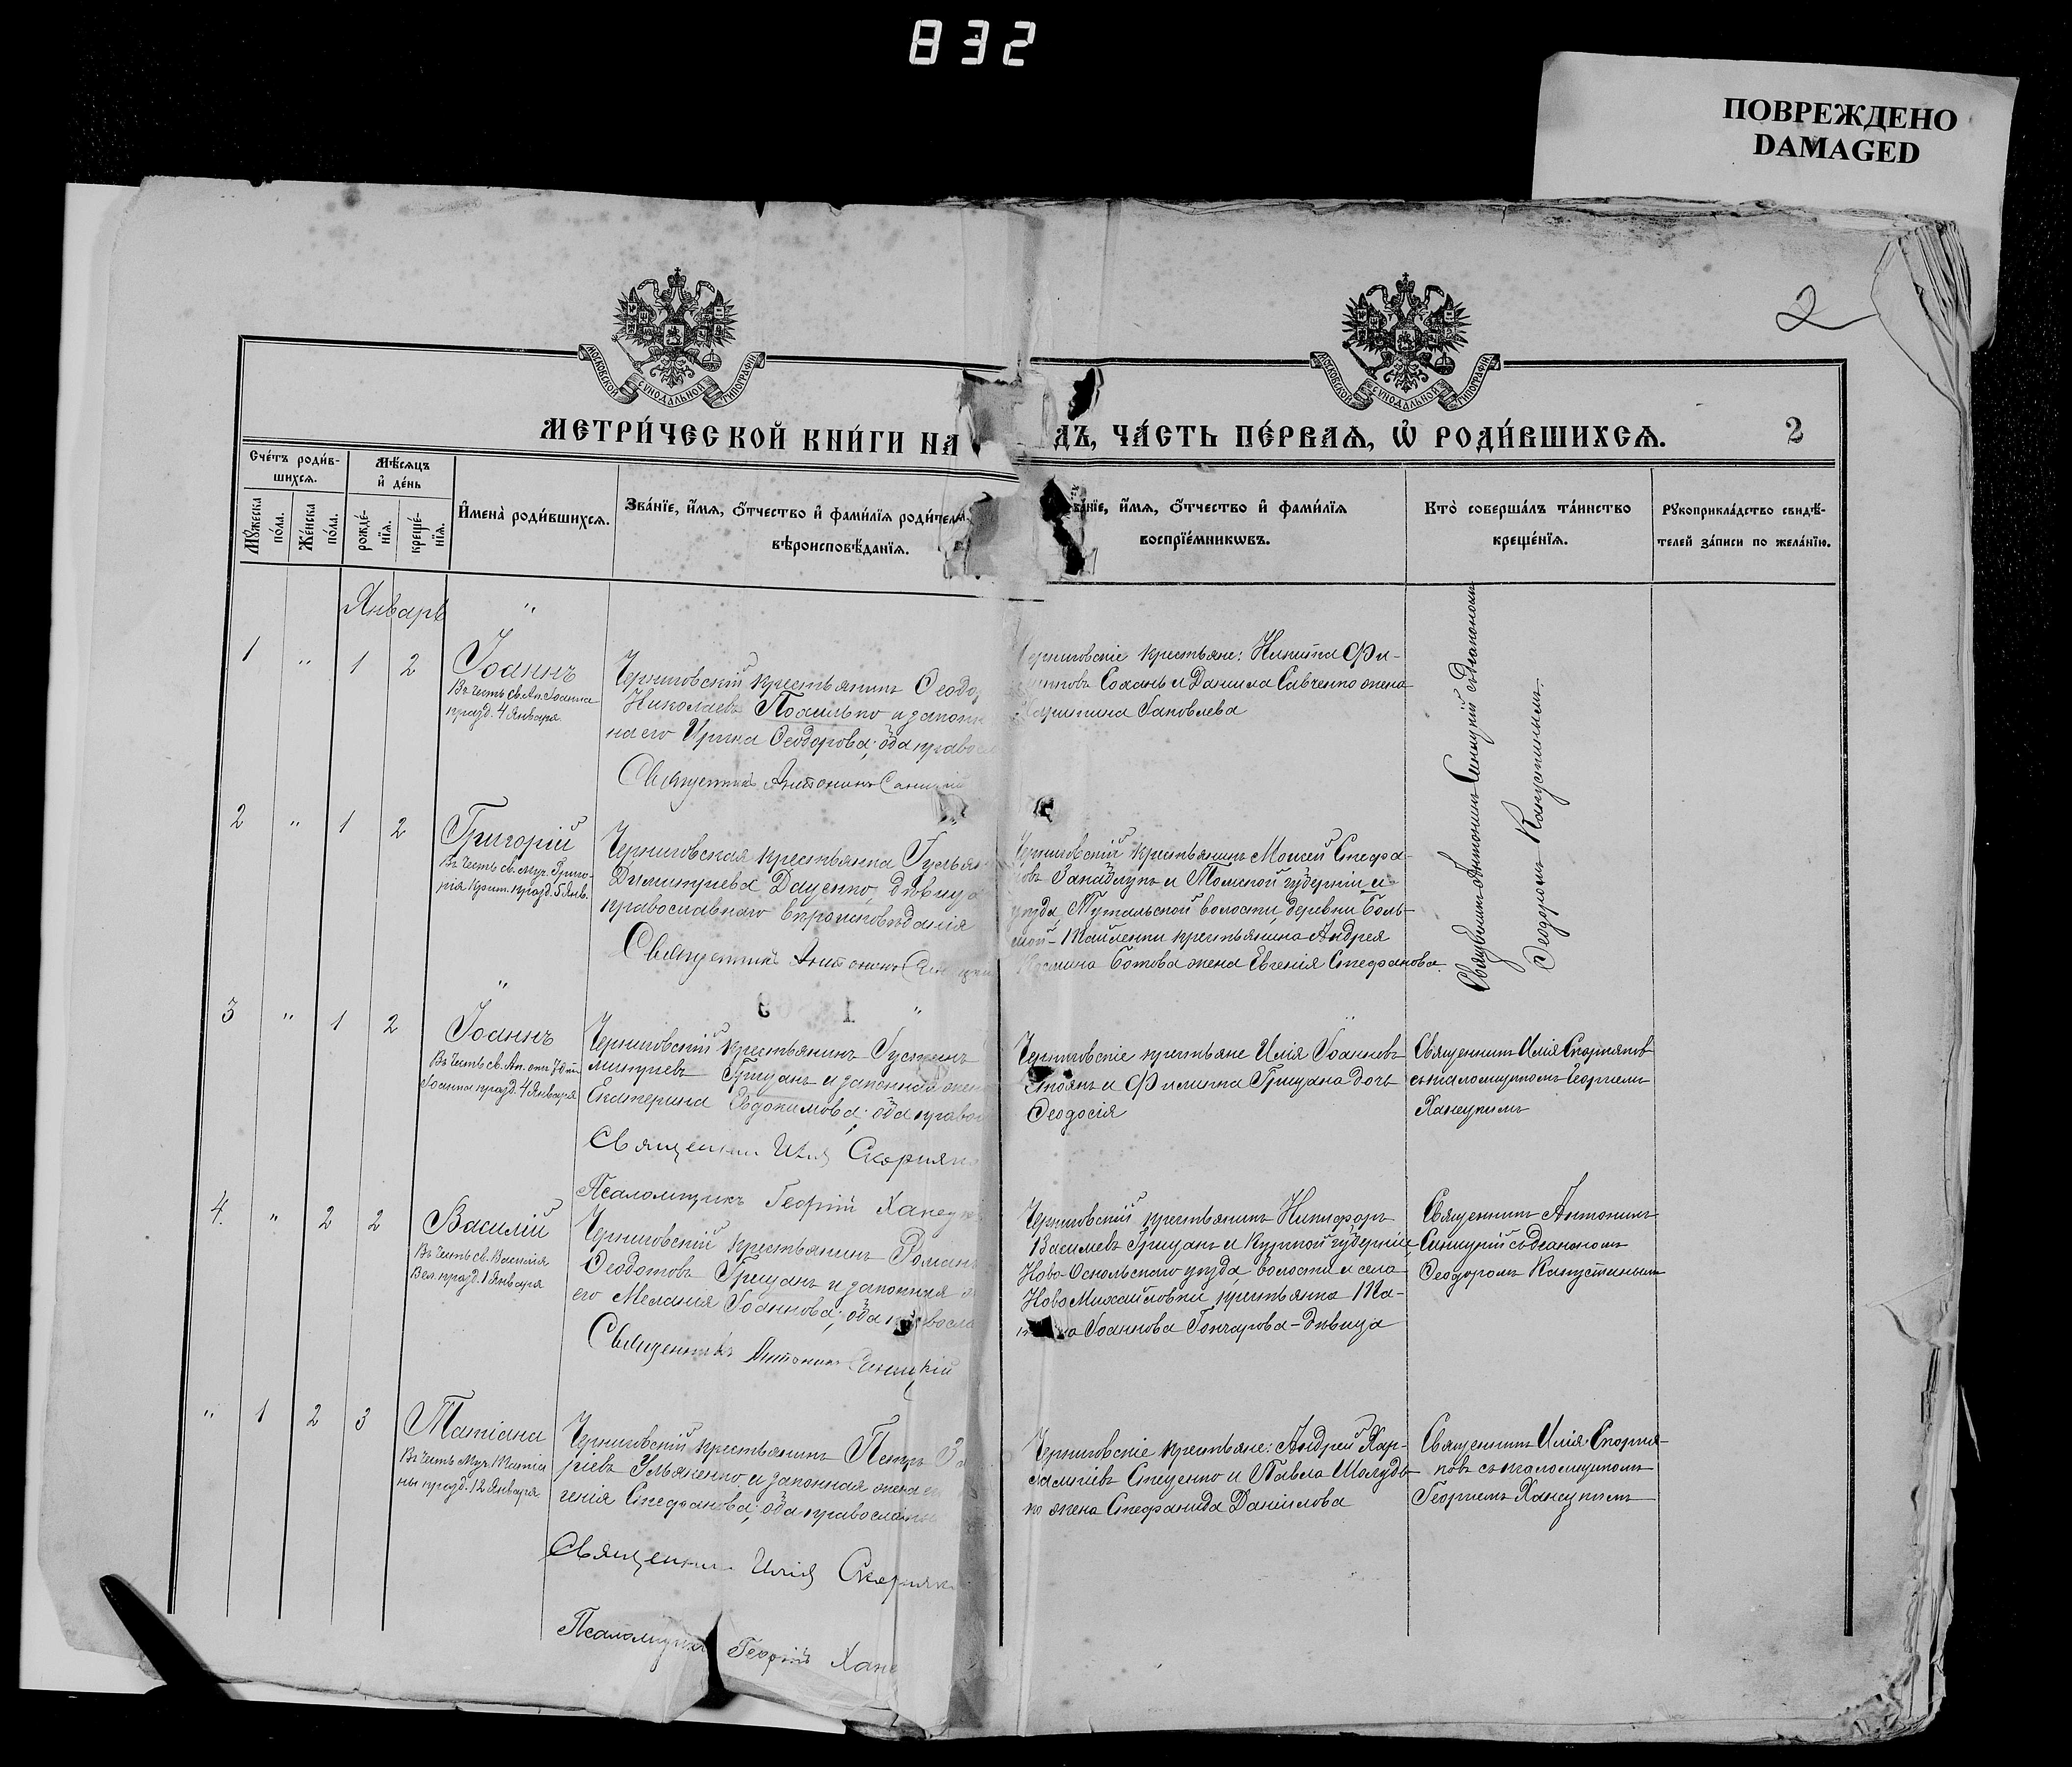 832
ПОВРЕЖДЕНО
DAMAGED
2
МОСКОВСКОЙ СѴНОДАЛЬНОЙ ТИПОГРАФІИ
МОСКОВСКОЙ СѴНОДАЛЬНОЙ ТИПОГРАФІИ
МЕТРИ́ЧЕСКОЙ КНИ́ГИ НА
ДЪ, ЧА́СТЬ ПЕ́РВАѦ, Ѽ РОДИ́ВШИХСѦ.
2
Сче́тъ роди́в-
шихсѧ.
Мѣ́сѧцъ
и҆ де́нь
Мꙋ́жеска
по́ла.
Же́нска
по́ла.
рожде́-
нїѧ.
креще́-
нїѧ.
И҆мена̀ роди́вшихсѧ.
Зва́нїе, и҆́мѧ, ѻ҆́тчество и҆ фами́лїѧ роди́телей,
вѣроисповѣ́данїѧ.
Зва́нїе, и҆́мѧ, ѻ҆́тчество и҆ фами́лїѧ
воспрїе́мникѡвъ.
Кто̀ соверша́лъ та́инство
креще́нїѧ.
Рꙋкоприкла́дство свидѣ́-
телей за́писи по жела́нїю.
Январь "
1 " 1 2
Іоаннъ
Въ честь св. Ап. Іоанна
празд. 4 Января.
Черниговскій крестьянинъ Ѳеодо
Николаевъ и законн
на его Ирина Ѳеодорова; оба правосл
Священникъ Антонинъ Синицкій
Черниговскіе крестьяне: Никита Фи-
Сохань и Даниила Савченко жена
Іаковлева
Священникъ Антонинъ Синицкій съ діакономъ
Ѳеодоромъ Капустинымъ.
2 " 1 2
Григорій
Въ честь св. муч. Григо-
рія Крит. празд. 5 Янв.
Черниговская крестьянка Іульян
Димитріева Даценко, дѣвица
православнаго вѣроисповѣданія
Священникъ Антонинъ Синицкій
Черниговскій крестьянинъ Моисей Стефа-
новъ и Томской губерніи и
уѣзда, Тутальской волости, деревни Боль-
шой- крестьянина Андрея
Ботова жена Евгенія Стефанова.
3 " 1 2
Іоаннъ
Въ честь св. Ап. отъ 70-ти
Іоанна празд. 4 Января
Черниговскій крестьянинъ Іустинъ
митріевъ Грицанъ и законная жен
Екатерина Евдокимова; оба правос
Священникъ Илія Скорняко
Псаломщикъ Георгій Ханец
Черниговскіе крестьяне Илія Іоанновъ
Стоянъ и Филиппа Грицана дочь
Ѳеодосія
Священникъ Илія Скорняковъ
съ псаломщикомъ Георгіемъ
4. " 2 2
Василій
Въ честь св. Василія
Вел. празд. 1 Января
Черниговскій крестьянинъ Романъ
Ѳеодотовъ Грицанъ и законная
его Меланія Іоаннова; оба правосла
Священникъ Антонинъ Синицкій
Черниговскій крестьянинъ Никифоръ
Васильевъ Грицанъ и Курской губерніи,
Ново-Оскольскаго уѣзда, волости и села
Ново Михайловки крестьянка
Іоаннова Гончарова - дѣвица
Священникъ Антонинъ
Синицкій съ діакономъ
Ѳеодоромъ Капустинымъ
" 1 2 3
Татіана
Въ честь муч. Татіа
ны празд. 12 Января
Черниговскій крестьянинъ Петръ За
ріевъ Ульяненко и законная жена ев
генія Стефанова; оба православны
Священникъ Илія Скорняк
Псаломщикъ Георгій Хане
Черниговскіе крестьяне: Андрей Хар-
лампіевъ Стеценко и Павла Шолудь-
ко жена Стефанида Даніилова
Священникъ Илія Скорня-
ковъ съ псаломщикомъ
Георгіемъ